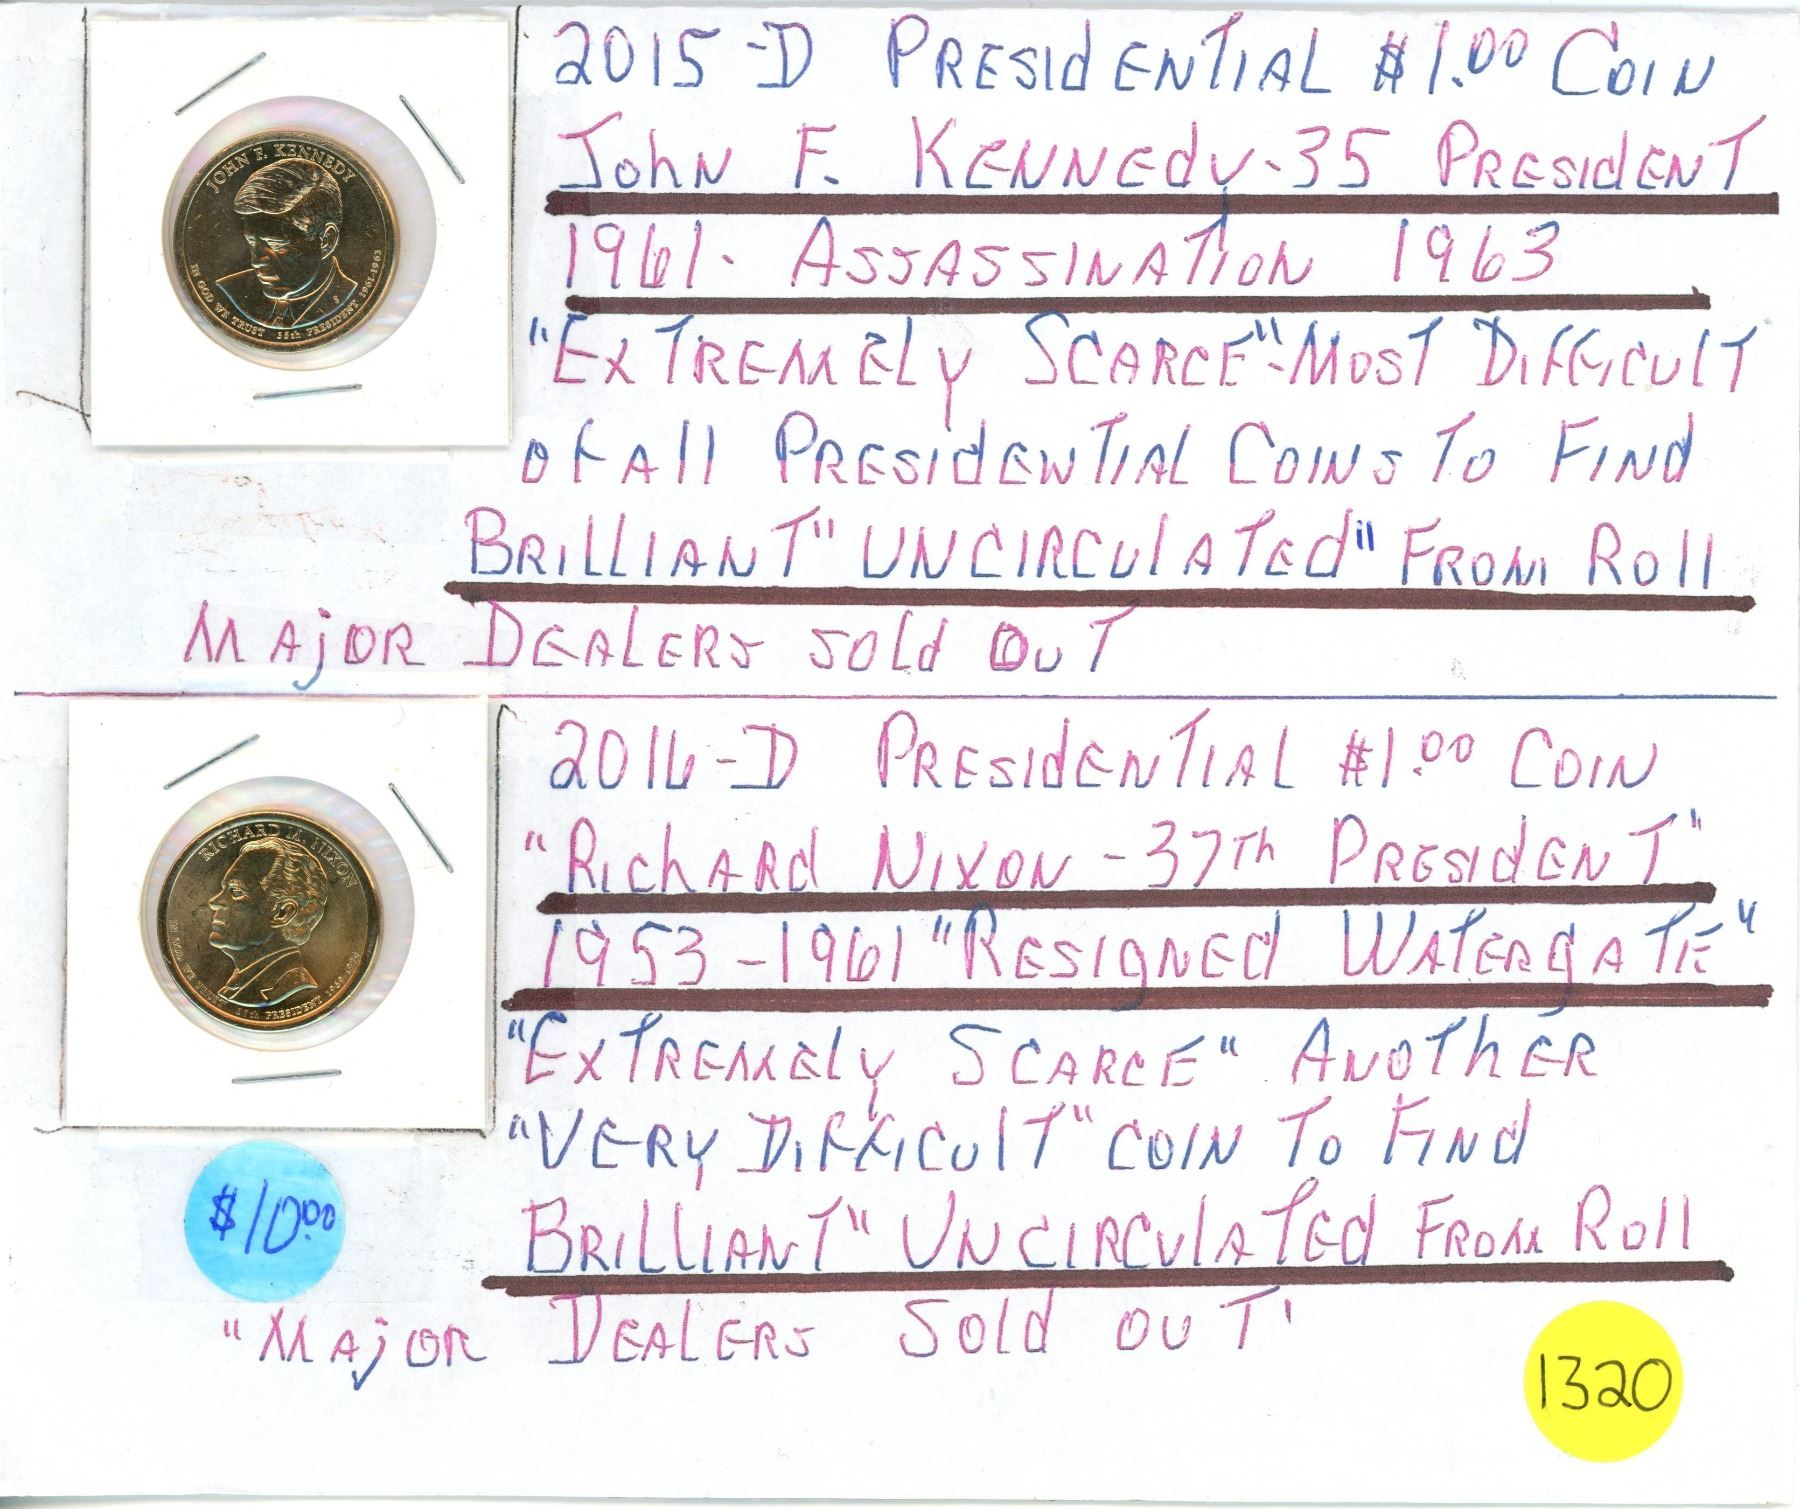 JOHN F. KENNEDY
IN GOD WE TRUST 35th PRESIDENT 1961-1963
2015-D PRESIdENTIAL $1.00 COIN
JohN F. KENNEdy-35 PRESIdENT
1961. ASSASSINATION 1963
"ExTREMELy SCARCE"-MOST DIFFICULT
OF All PRESIdENTIAL COINS TO FINd
BRILLIANT" UNCIRCULATEd" FROM Roll
MAjOR DEALERS SOLd OUT
RICHARD M. NIXON
IN GOD WE TRUST 37th PRESIDENT 1969-1974
2016-D PRESIdENTIAL $1.00 COIN
"RIchARd NIXON - 37Th PRESIdENT"
1953-1961 "RESIgNEd WATERgATE"
"ExTREMELy SCARCE" ANOTHER
"VERY DIFFICULT" COIN TO FINd
BRILLIANT" UNCIRCULATEd FROM Roll
"MAjOR DEALERS SOLd OUT'
$10.00
1320